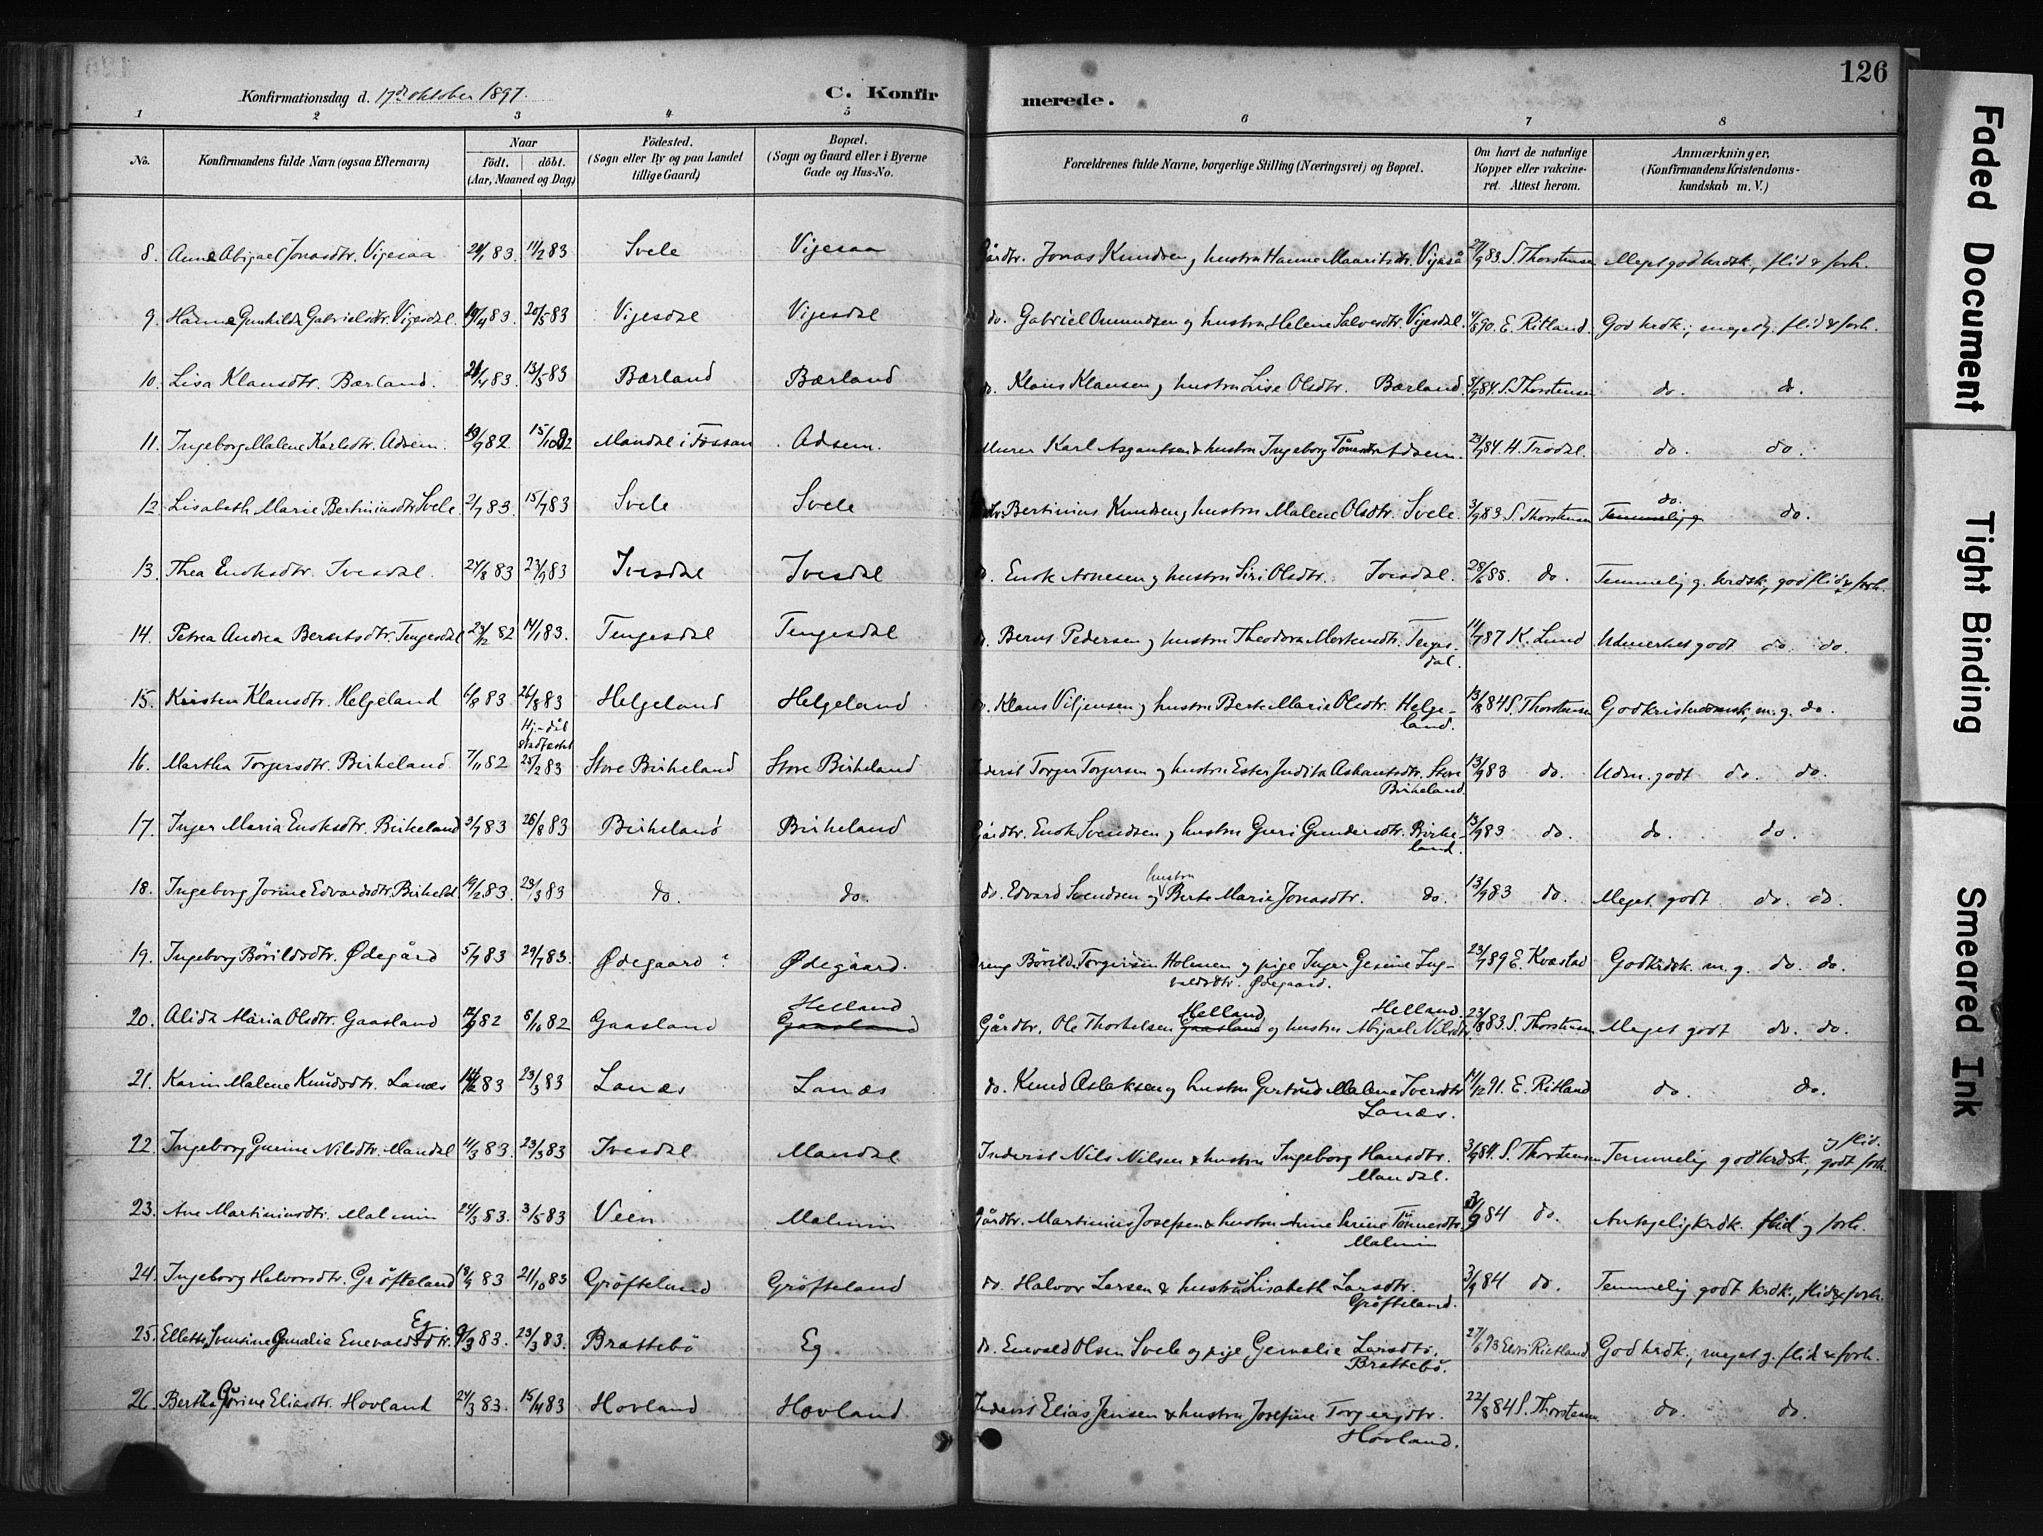 126
Konfirmationsdag d. 17de oktober 1897. C. Konfir merede.
1 2 3 4 5 6 7 8
No. Konfirmandens fulde Navn (ogsaa Efternavn) Naar født. døbt. (Aar, Maaned og Dag) Födested. (Sogn eller By og paa Landet tillige Gaard) Bopæl. (Sogn og Gaard eller i Byerne Gade og Hus-No. Forældrenes fulde Navne, borgerlige Stilling (Næringsvei) og Bopæl. Om havt de naturlige Kopper eller vakcineret. Attest herom. Anmærkninger, (Konfirmandens Kristendomskundskab m. V.)
8. Anne Abigael Jonasdtr. Vigesaa 83. 11/2 83 Svele Vigesaa Gårdbr. Jonas Knudsen og hustru Hanne Mauritsdtr. Vigeså 27/9 83 S. Thorstensen Meget god krdsk., flid & forh.
9. Hanne Gunhilda Gabrielsdtr. Vigesdal. 19/4 83. 20/5 83 Vigesdal Vigesdal do. Gabriel Omundsen og hustru Helene Salvesdtr. Vigesdal. 90. E. Ritland. God krdk., meget g. flid & forh.
10. Lisa Klausdtr. Bærland. 21/4 83. 13/5 83 Bærland Bærland do. Klaus Klausen og hustru Lise Olsdtr. Bærland. 3/9 84. S. Thorstensen do. do.
11. Ingeborg Malene Karlsdtr. Adsem. 19/9 82 15/10 82 Mandal i Fossan Adsem. Murer Karl Asgautsen & hustru Ingeborg Tönesdtr Adsem. 23/9 84. H. Trodal. do. do.
12. Lisabeth Marie Bertiniusdtr Svele. 2/7 83. 15/7 83 Svele Svele Gårdbr. Bertinius Knudsen og hustru Malene Olsdtr. Svele. 3/9 83 S. Thorstensen Temmelig g do. do.
13. Thea Enoksdtr. Ivesdal. 27/8 83 23/9 83 Ivesdal Ivesdal do. Enok Arnesen og hustru Siri Olsdtr. Ivesdal. 28/6 88. do. Temmelig g. krdsk., god flid & forh.
14. Petrea Andrea Berntsdtr. Tengesdal 23/12 82 14/1 83. Tengesdal Tengesdal do. Bernt Pedersen og hustru Theodora Mortensdtr. Tengesdal. 11/7 87 K. Lund Udmerket godt do. do.
15. Kirsten Klausdtr. Helgeland 6/8 83 26/8 83 Helgeland Helgeland do. Klaus Viljensen og hustru Berte Marie Olsdtr. Helgeland. 13/8 84 S. Thorstensen God kristendomsk., m. g. do.
16. Martha Torgersdtr. Birkeland. 7/11 82 Hj.-døb stadfæstet 25/2 83 Store Birkeland Store Birkeland Inderst Torger Torgersen og hustru Ester Judita Askautsdtr. Store Birkeland. 13/9 83 do. Udm. godt do. do.
17. Inger Maria Enoksdtr. Birkeland 3/7 83 26/8 83 Birkeland Birkeland Gårdbr. Enok Svendsen og hustru Guri Gundersdtr. Birkeland. 13/9 83 do. do. do.
18. Ingeborg Jorine Edvardsdtr. Birkeld. 14/2 83. 23/3 83 do. do. do. Edvard Svendsen og hustru Berte Marie Jonasdtr. do. 13/9 83 do. Meget godt do. do.
19. Ingeborg Börildsdtr. Ødegård 5/7 83 29/7 83. Ødegaard ? Ødegaard. Dreng Böril Torgersen Holmen og pige Inger Gesine Ingvaldsdtr. Ødegaard. 23/7 89 E. Kvæstad God krdsk. m. g. do. do.
20. Alida Maria Olsdtr. Gaasland 82 8/10 82 Gaasland Helland Gaasland Gårdbr. Ole Thorkelsen Helland Gaasland og hustru Abigael Nilsdtr. Helland. 23/8 83 S. Thorstensen Meget godt do. do.
21. Karin Malene Knudsdtr. Lanæs 83 23/3 83 Lanæs Lanæs do. Knud Aslaksen og hustru Gertrud Malene Iversdtr Lanæs. 14/12 91. E. Ritland do. do.
22. Ingeborg Gurine Nilsdtr. Mandal 11/3 83. 23/3 83 Ivesdal Mandal Inderst Nils Nilsen & hustru Ingeborg Hansdtr. Mandal. 3/9 84. S. Thorstensen Temmelig god krdsk., godt forh. og flid.
23. Ane Martiniusdtr. Malmin 24/3 83. 3/5 83 Veen Malmin Gårdbr. Martinius Josefsen & hustru Anne Serine Tönnesdtr. Malmin 3/9 84 do. Antageligkrdk. flid og forh.
24. Ingeborg Halvorsdtr. Gröfteland 18/9 83. 21/10 83 Gröfteland Gröfteland do. Halvor Larsen & hustru Lisabeth Larsdtr. Gröfteland. 3/9 84 do. Temmelig godt krdk., flid & forh.
25. Elletta Sventine Gemalie Enevaldsdtr. Eg 9/3 83. 23/3 83. Brattebö Eg. do. Enevald Olsen Svele og pige Gemalie Larsdtr. Brattebö. 27/6 93 Endri Rietland God krdk., meget g. flid & forh.
26. Bertha Görine Eliasdtr. Hovland 24/3 83. 15/4 83 Hovland Hovland Inderst Elias Jensen & hustru Josefine Torgersdtr. Hovland. 22/8 84 S. Thorstensen do. do.
Faded Document
Tight Binding
Smeared Ink